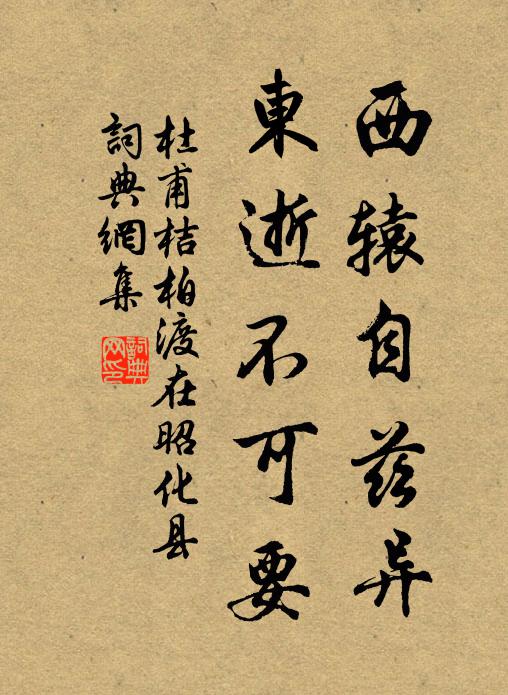 西辕自兹异
東逝不可要
杜甫桔柏渡在昭化县
詞典網集
詞典
网印